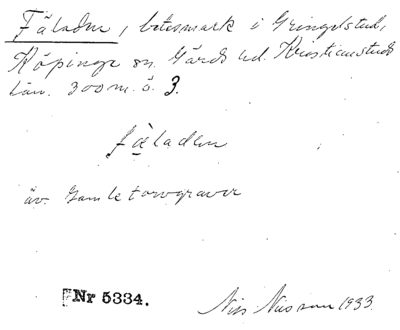 Fäladen, betesmark i Gringelstad,
Köpinge sn. Gärds hd. Kristianstads
län. 300 m. ö. 3.
fäladen
äv. Gamle torvgraver
Nr 5334.
Nils Nilsson 1933.